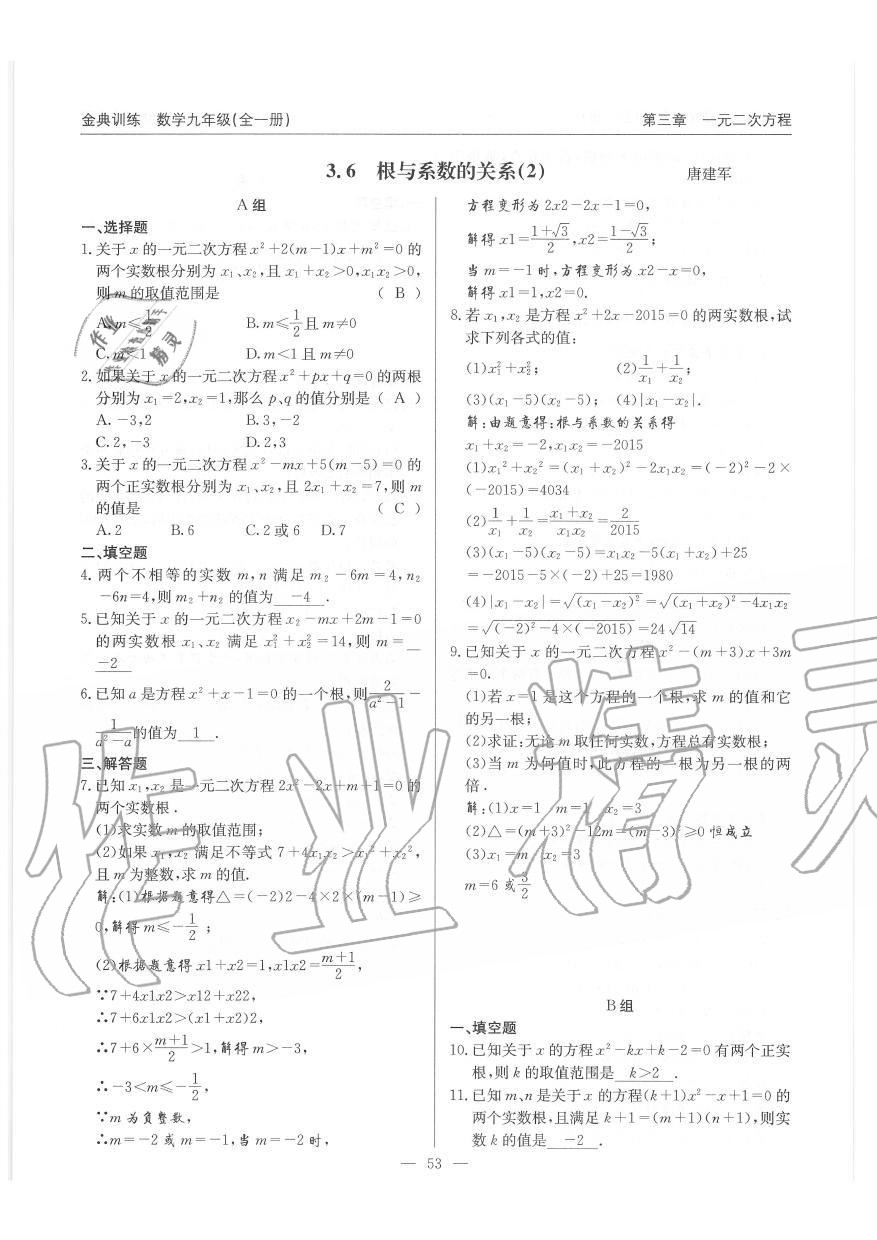 金典训练 数学九年级(全一册)
第三章 一元二次方程
3.6 根与系数的关系(2)
唐建军
A组
一、选择题
1.关于x的一元二次方程x²+2(m-1)x+m²=0的
两个实数根分别为x₁、x₂,且x₁+x₂>0,x₁x₂>0,
则m的取值范围是 ( B )
A.m≤1/2 B.m≤1/2且m≠0
C.m<1 D.m<1且m≠0
2.如果关于x的一元二次方程x²+px+q=0的两根
分别为x₁=2,x₂=1,那么p、q的值分别是( A )
A.-3,2 B.3,-2
C.2,-3 D.2,3
3.关于x的一元二次方程x²-mx+5(m-5)=0的
两个正实数根分别为x₁、x₂,且2x₁+x₂=7,则m
的值是 ( C )
A.2 B.6 C.2或6 D.7
二、填空题
4.两个不相等的实数m,n满足m₂-6m=4,n₂
-6n=4,则m₂+n₂的值为 -4 .
5.已知关于x的一元二次方程x₂-mx+2m-1=0
的两实数根x₁、x₂满足x₁²+x₂²=14,则m=
-2
6.已知a是方程x²+x-1=0的一个根,则2/(a²-1)-
1/(a²-a)的值为 1 .
三、解答题
7.已知x₁,x₂是一元二次方程2x²-2x+m+1=0的
两个实数根.
(1)求实数m的取值范围;
(2)如果x₁,x₂满足不等式7+4x₁x₂>x₁²+x₂²,
且m为整数,求m的值.
解:(1)根据题意得△=(-2)2-4×2×(m-1)≥
0,解得m≤-1/2;
(2)根据题意得x1+x2=1,x1x2=(m+1)/2,
∵7+4x1x2>x12+x22,
∴7+6x1x2>(x1+x2)2,
∴7+6×(m+1)/2>1,解得m>-3,
∴-3<m≤-1/2,
∵m为负整数,
∴m=-2或m=-1,当m=-2时,
方程变形为2x2-2x-1=0,
解得x1=(1+√3)/2,x2=(1-√3)/2;
当m=-1时,方程变形为x2-x=0,
解得x1=1,x2=0.
8.若x₁,x₂是方程x²+2x-2015=0的两实数根,试
求下列各式的值:
(1)x₁²+x₂²; (2)1/x₁+1/x₂;
(3)(x₁-5)(x₂-5); (4)|x₁-x₂|.
解:由题意得:根与系数的关系得
x₁+x₂=-2,x₁x₂=-2015
(1)x₁²+x₂²=(x₁+x₂)²-2x₁x₂=(-2)²-2×
(-2015)=4034
(2)1/x₁+1/x₂=(x₁+x₂)/(x₁x₂)=2/2015
(3)(x₁-5)(x₂-5)=x₁x₂-5(x₁+x₂)+25
=-2015-5×(-2)+25=1980
(4)|x₁-x₂|=√((x₁-x₂)²)=√((x₁+x₂)²-4x₁x₂)
=√((-2)²-4×(-2015))=24√14
9.已知关于x的一元二次方程x²-(m+3)x+3m
=0.
(1)若x=1是这个方程的一个根,求m的值和它
的另一根;
(2)求证:无论m取任何实数,方程总有实数根;
(3)当m为何值时,此方程的一根为另一根的两
倍.
解:(1)x=1 m=1 x₂=3
(2)△=(m+3)²-12m=(m-3)²≥0恒成立
(3)x₁=m x₂=3
m=6或3/2
B组
一、填空题
10.已知关于x的方程x²-kx+k-2=0有两个正实
根,则k的取值范围是 k>2 .
11.已知m、n是关于x的方程(k+1)x²-x+1=0的
两个实数根,且满足k+1=(m+1)(n+1),则实
数k的值是 -2 .
— 53 —
作业精灵